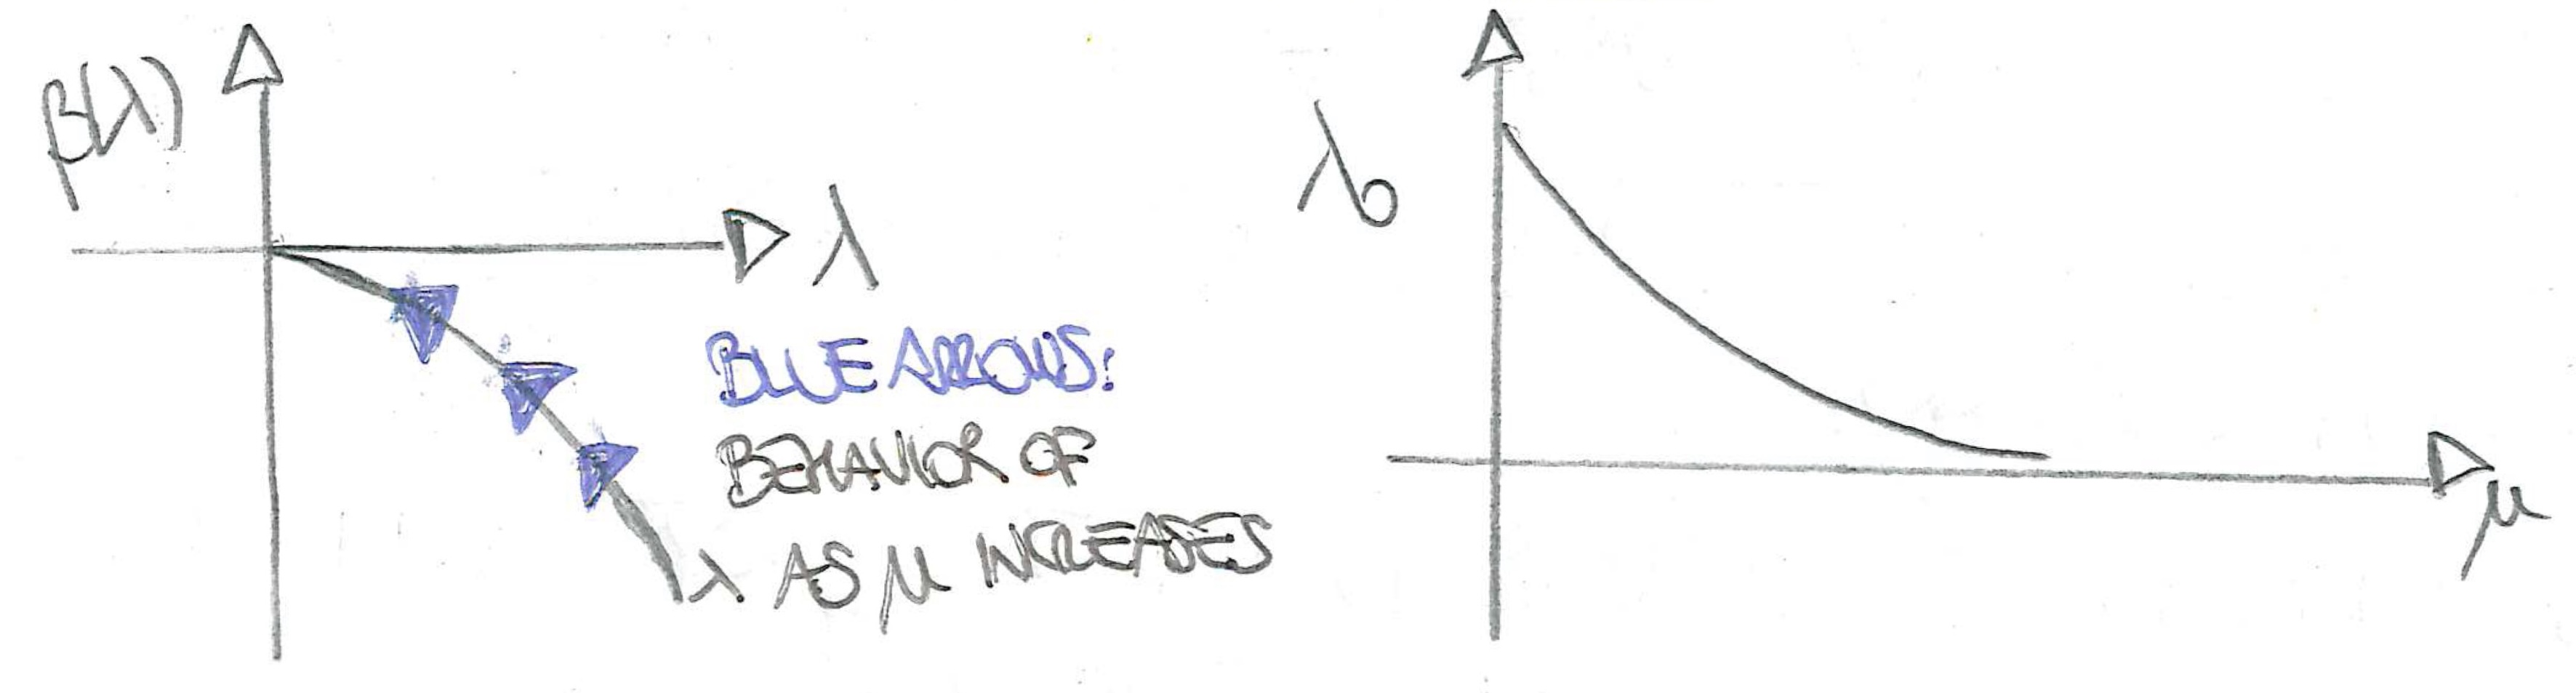 β(λ)
λ
BLUE ARROWS:
BEHAVIOR OF
λ AS μ INCREASES
λ₀
μ